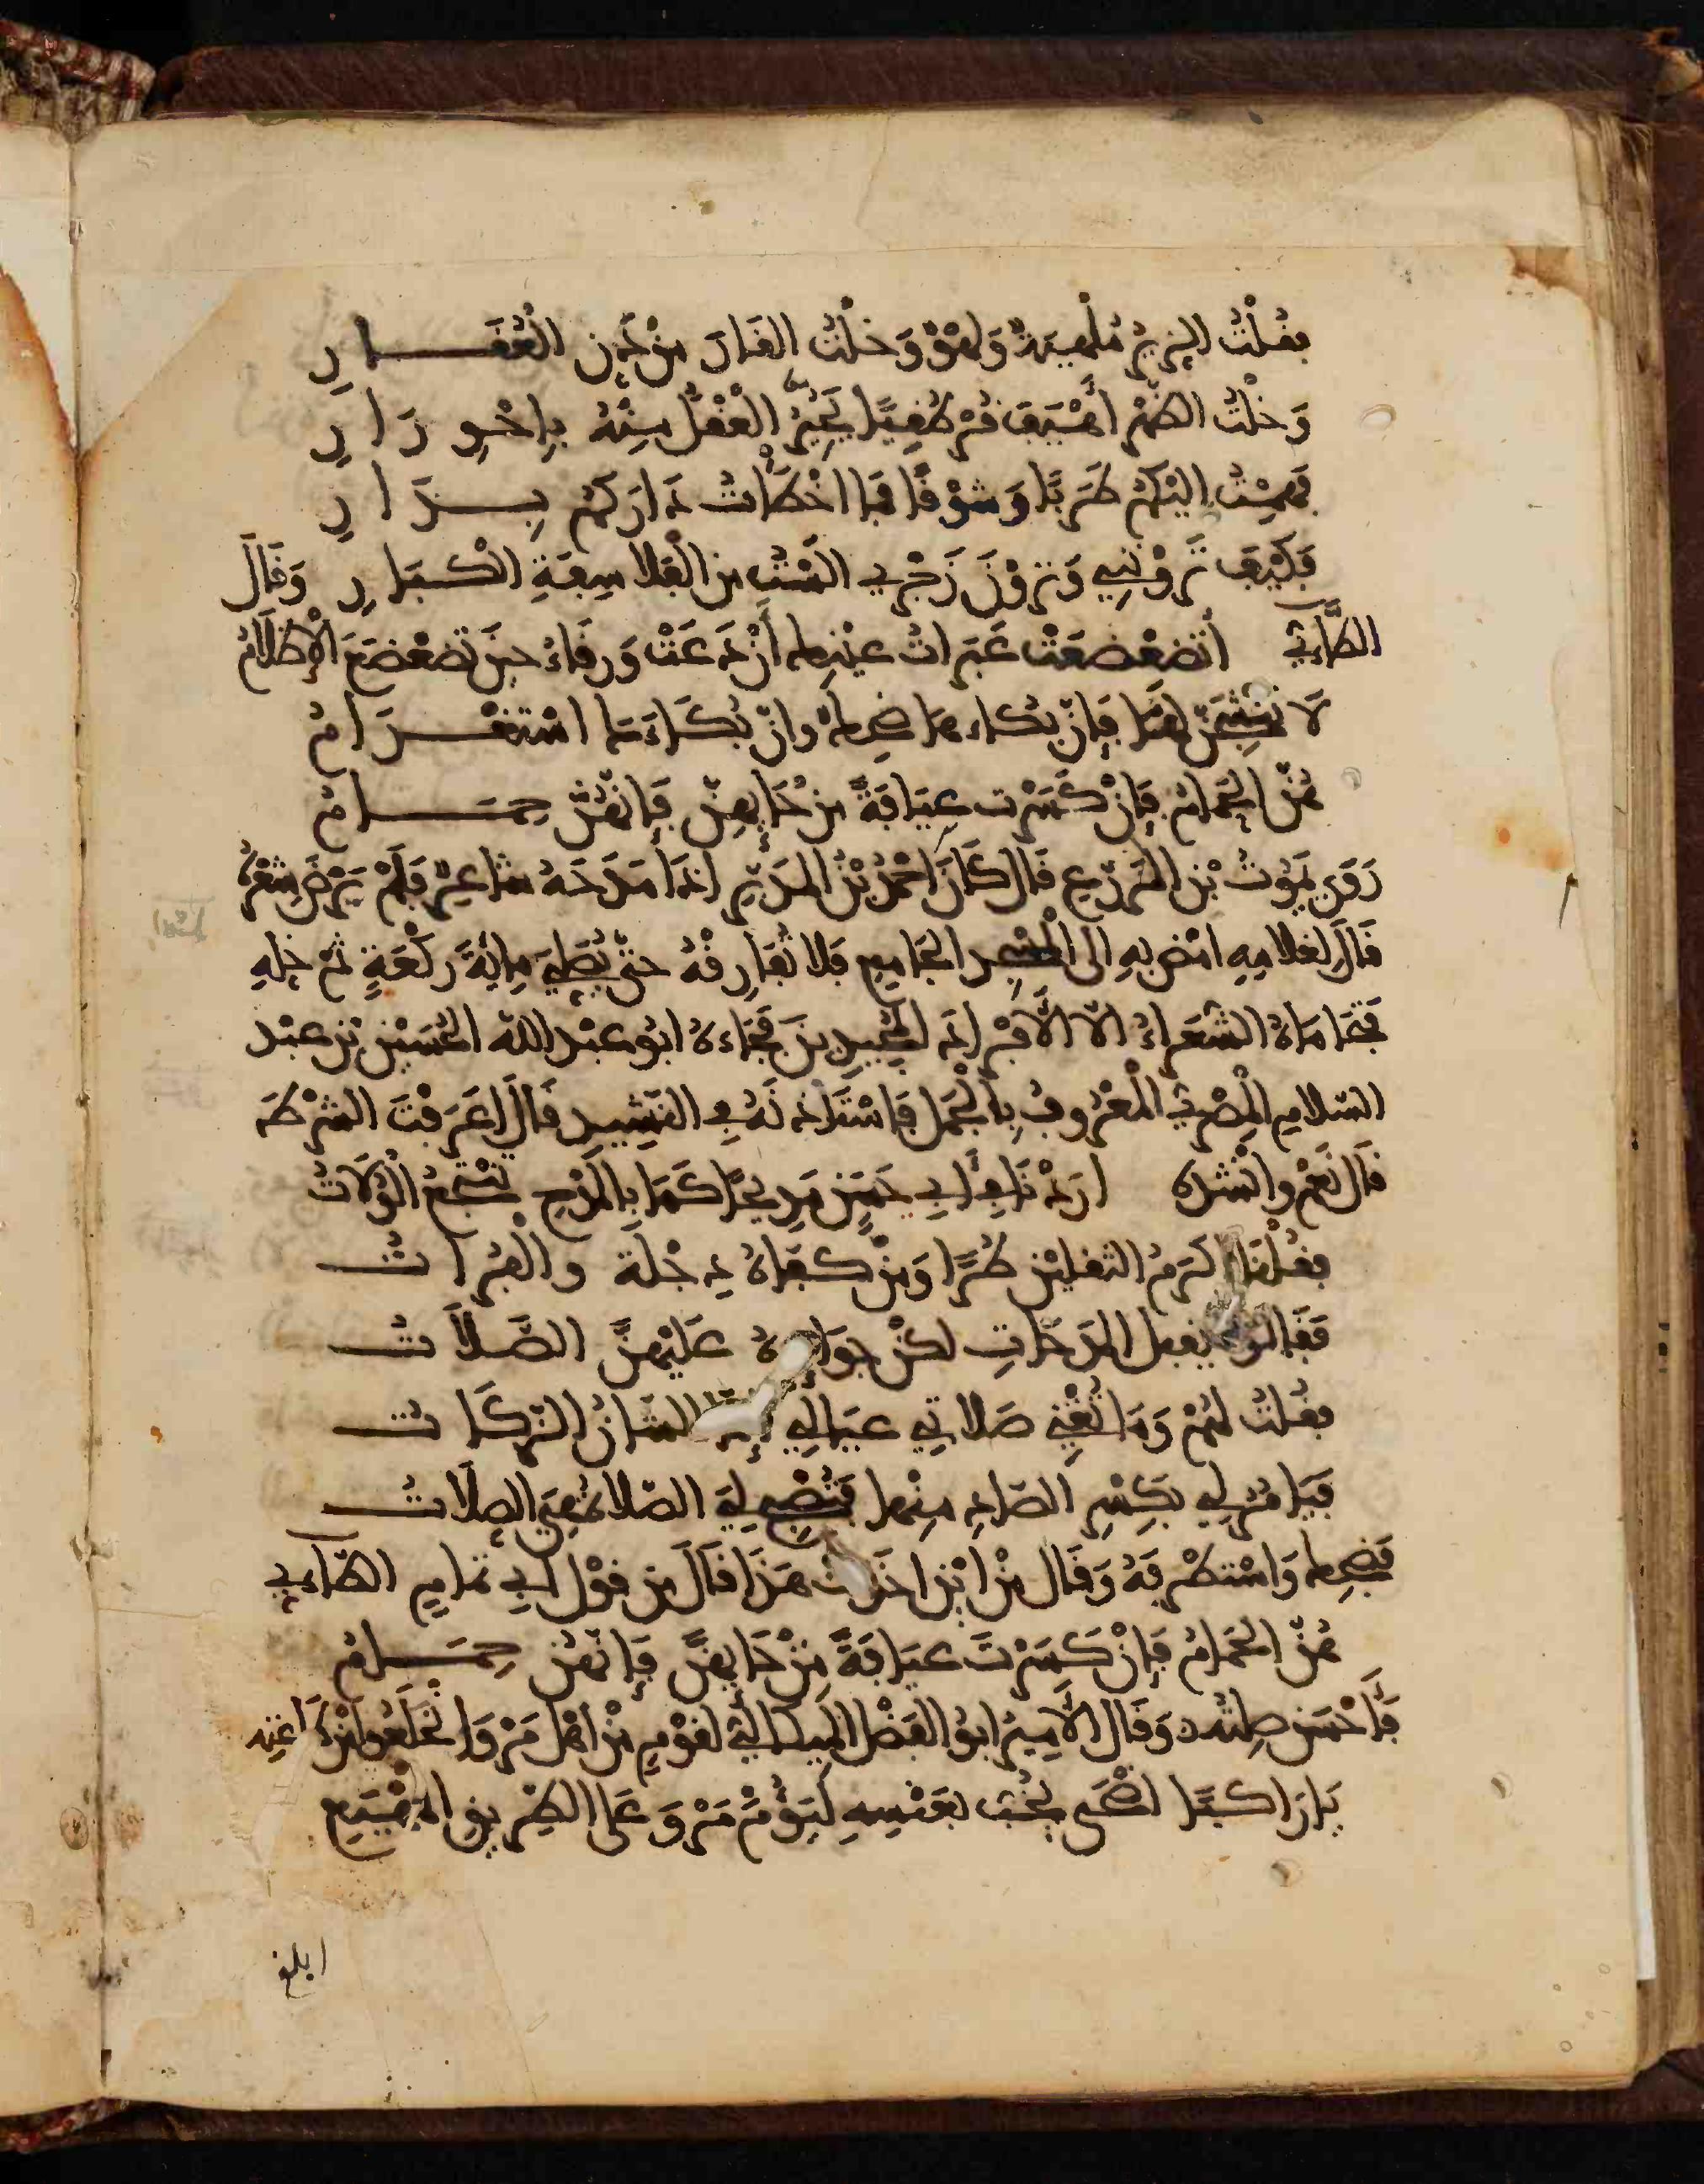 فقلت الريح ملهية ولهو وخلت الفار من دن العقار
وخلت الضم أهيف قرطقيا يحير العقل منه باحورار
فهمت اليكم طربا وشوقا فما اخطات داركم بدار
فكيف تروني وترون زجري الست من الفلاسفة الكبار وقال
الطاءي أتضعضعت عبرات عينك أن دعت ورقاء حين تضعضع الإظلام
لا تشجين لها فإن بكاءها ضحك وان بكاءك استغرام
هن الحمام فإن كسرت عيافة من حايهن فإنهن حمام
روى يموت بن المزرع قال كان احمد بن المدبر اذا مدحه شاعر فلم يرض شعره
قال لغلامه امض به الى المسجد الجامع فلا تفارقه حتى يصلي ماية ركعة ثم خله
فتحاماه الشعراء الا الافراد المجيدين فجاءه ابو عبد الله الحسين بن عبد
السلام المصري المعروف بالجمل فاستاذنه في النشيد قال اعرفت الشرطة
قال نعم وانشده اردنا في أبي حسن مديحا كما بالمدح تنتجع الولاة
فقلنا اكرم الثقلين طرا ومن كفاه دجلة والفرات
فقالوا يقبل المدحات لكن جوايزه عليهن الصلاة
فقلت لهم وما تغني صلاتي عيالي الشان الزكاة
فيامر لي بكسر الصاد منها فتصبح لي الصلاة هي الصلات
فضحك واستظرفه وقال من اين اخذت هذا قال من قول ابي تمام الطاءي
هن الحمام فإن كسرت عيافة من حايهن فإنهن حمام
فأحسن صلته وقال الامير ابو الفضل الميكالي لقوم من اهل مرو انخلعوا من طاعته
يا راكبا اضحى يخب بعنسه ليؤم مرو على الطريق المهيع
ابلغ